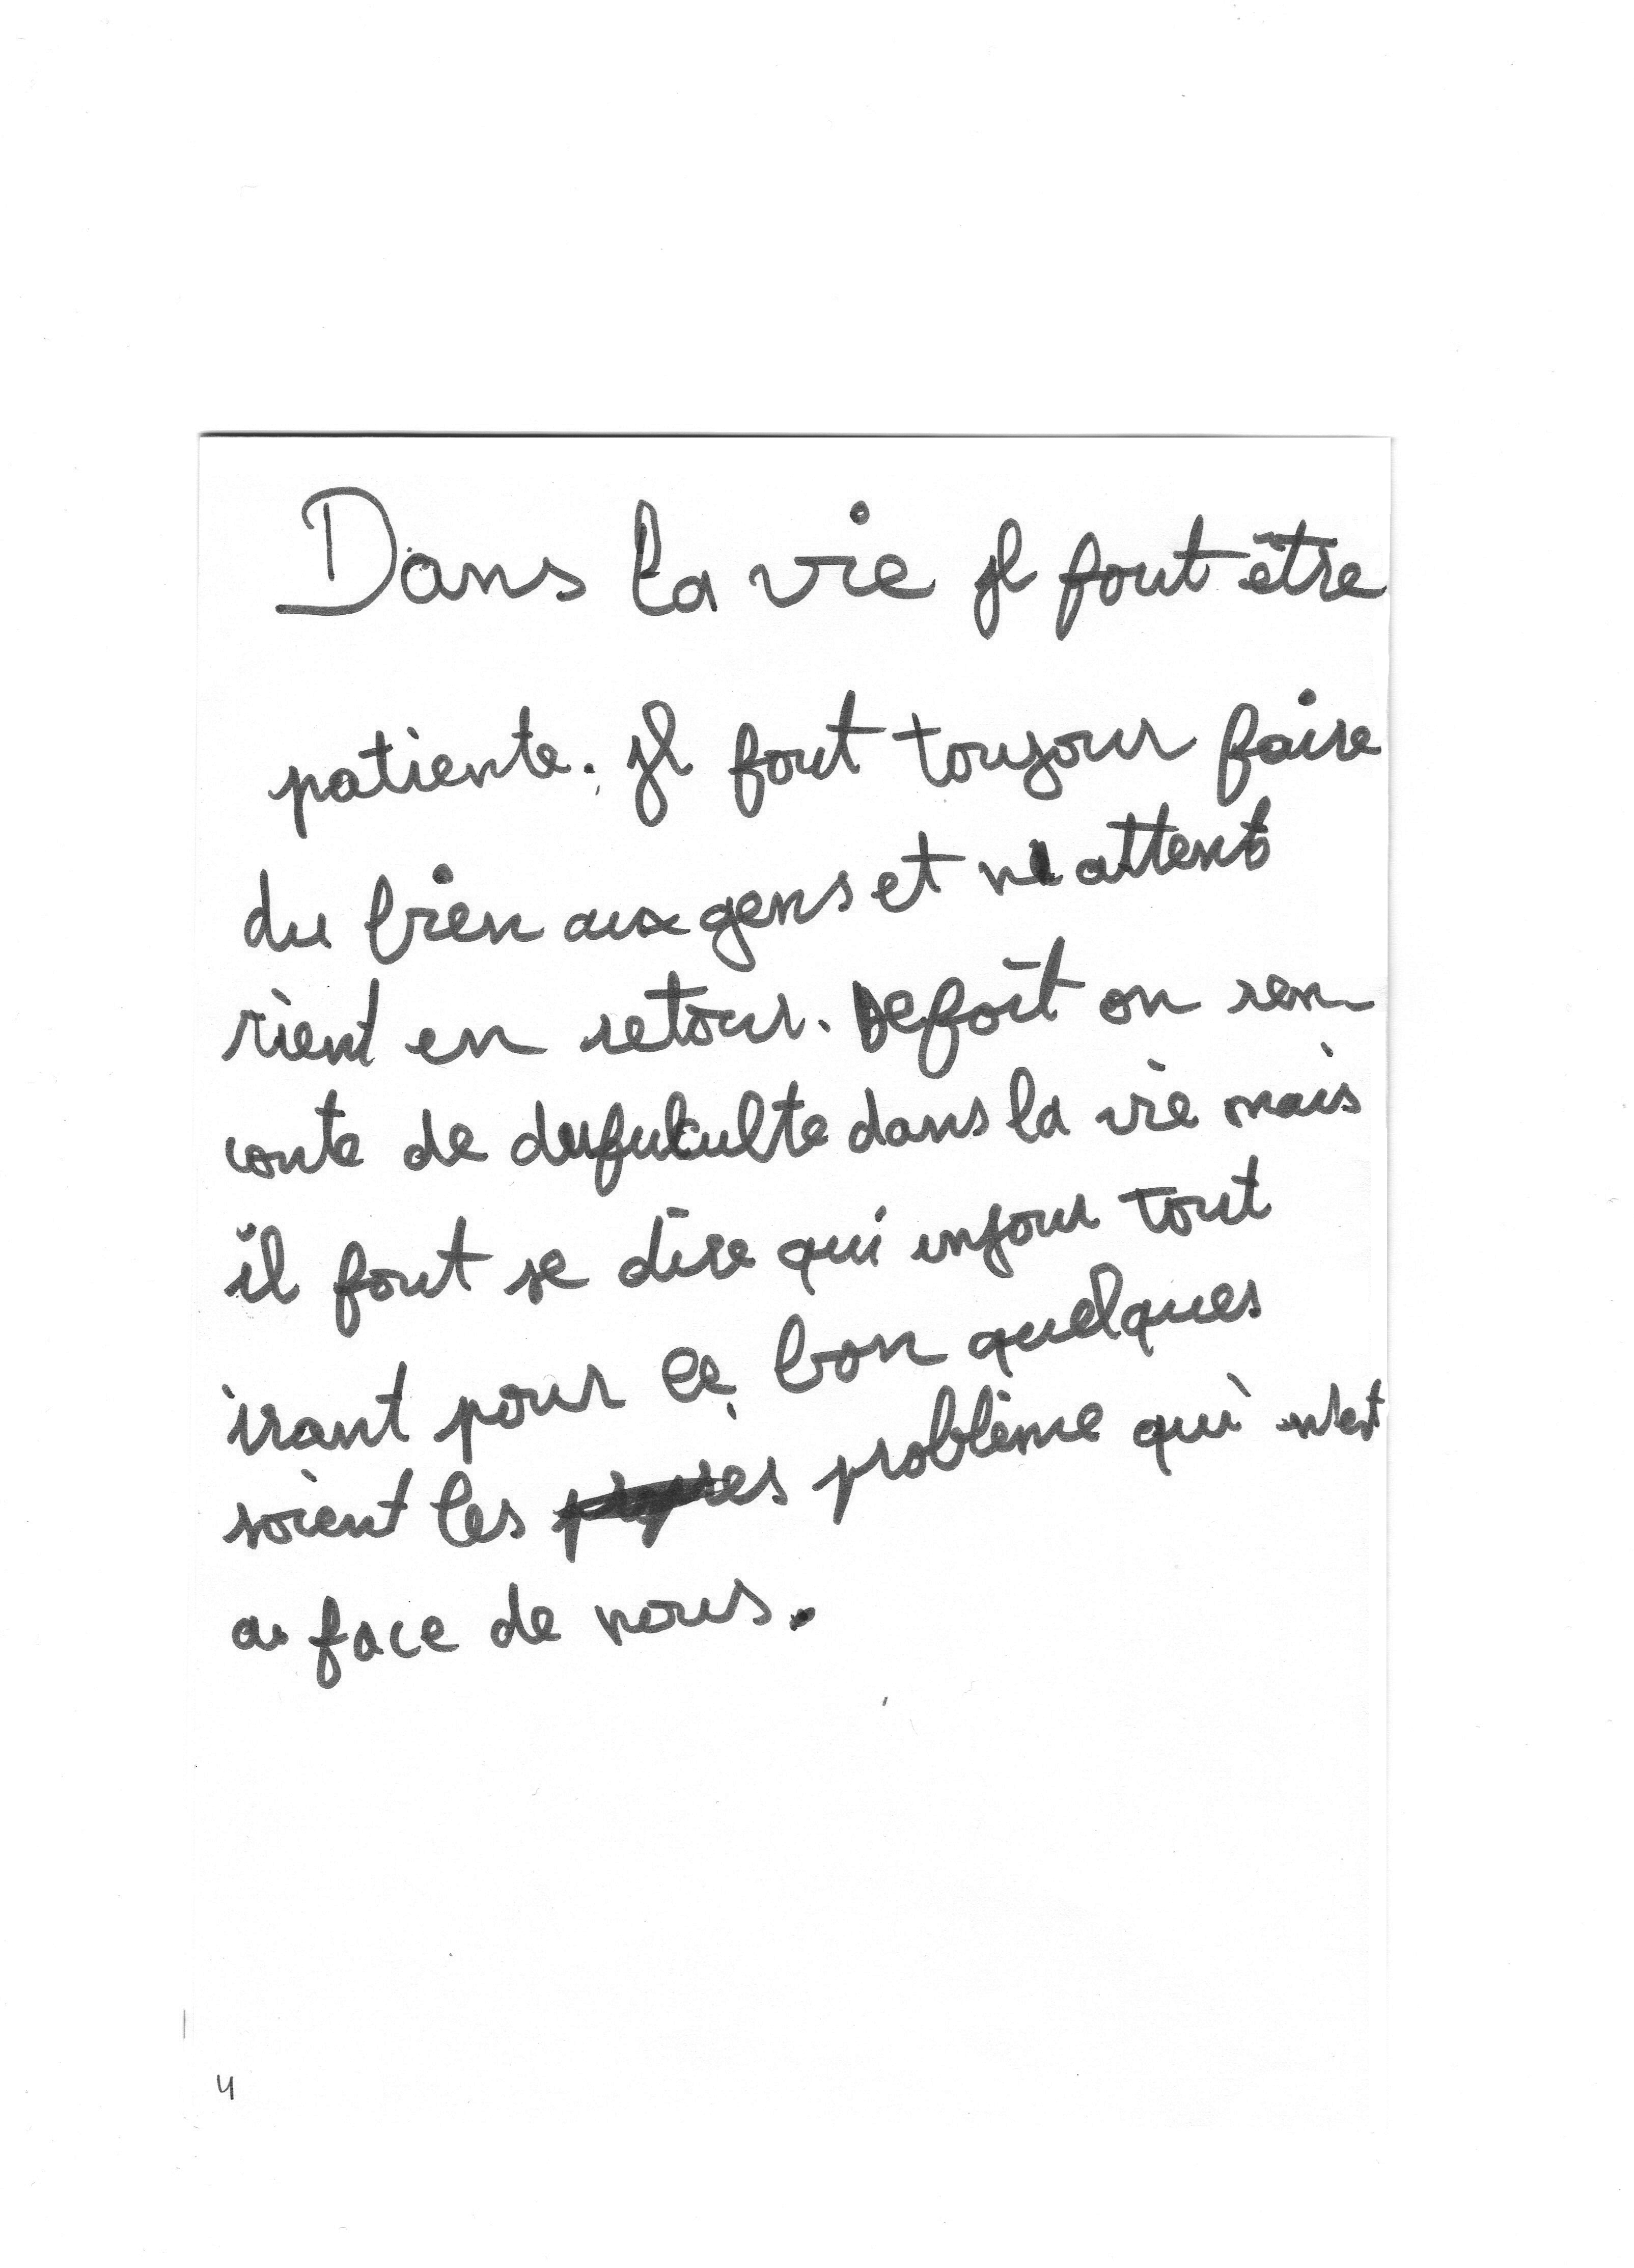 Dans la vie il faut être
patiente. Il faut toujour faire
du bien aux gens et ne attent
rient en retour. De foit on ren
conte de dufuculte dans la vie mais
il faut se dire qui unjour tout
irant pour le bon quelques
soient les problème qui
a face de nous.
4